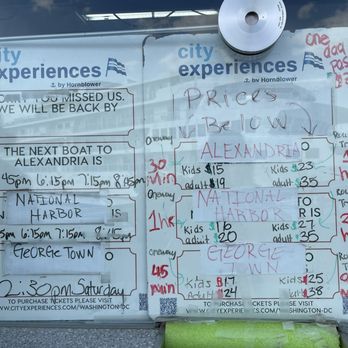 city
experiences
by Hornblower
YOU MISSED US.
WE WILL BE BACK BY
THE NEXT BOAT TO
ALEXANDRIA IS
45pm 6:15pm 7:15pm 8:45pm
NATIONAL
HARBOR
6:15pm 7:15pm 8:45
GEORGE TOWN
2:30pm Saturday
TO PURCHASE TICKETS PLEASE VISIT
WWW.CITYEXPERIENCES.COM/WASHINGTON-DC
city
experiences
by Hornblower
Prices
Below
Oneway
ALEXANDRIA
30
Min
Kids $15 Kids $23
adult $19 adult $35
Oneway
NATIONAL
HARBOR
IS
1hr
Kids $16 Kids $27
adult 20 adult $35
Oneway
GEORGE
TOWN
45
min
Kids $17 Kids $25
Adult $24 adult $38
TO PURCHASE TICKETS PLEASE VISIT
WWW.CITYEXPERIENCES.COM/WASHINGTON-DC
One
day
Pass